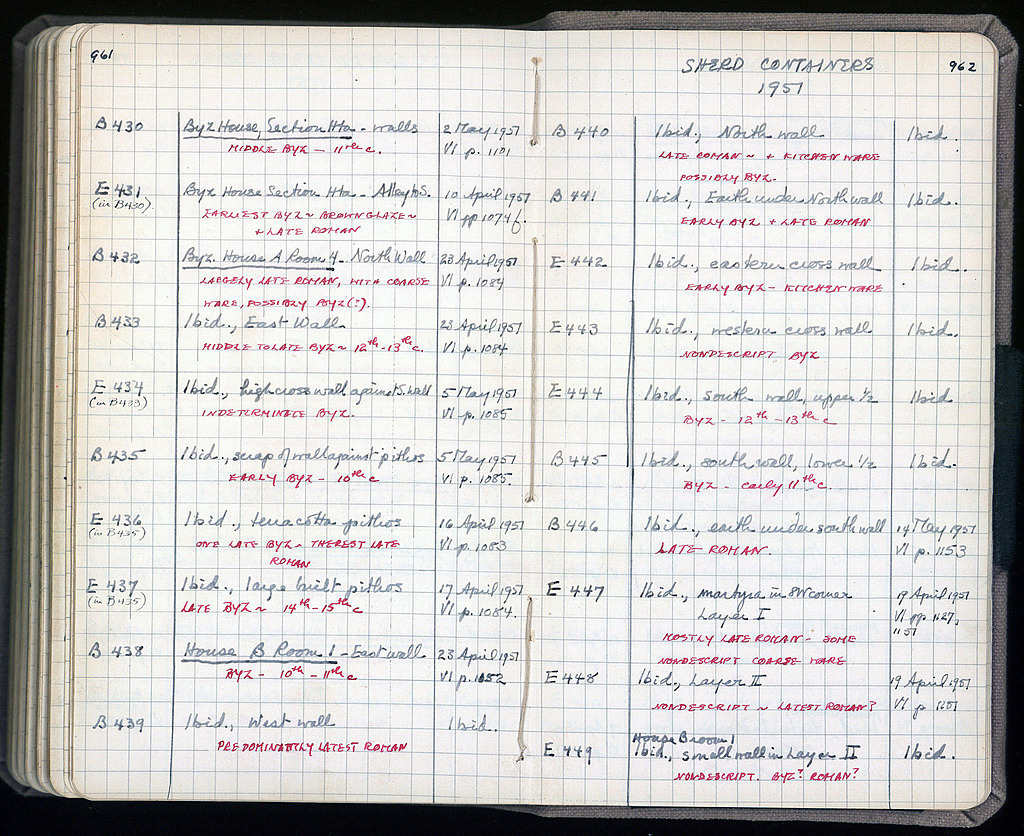 961
B 430 Byz House, Section Hta - walls 2 May 1957
MIDDLE BYZ - 11th c. VI p. 1101
E 431 Byz House Section Hta - 10 April 1957
(in B430) EARLIEST BYZ ~ BROWN GLAZE ~ VI pp 1074f.
+ LATE ROMAN
B 432 Byz. House A Room 4 - North Wall 23 April 1957
LARGELY LATE ROMAN, WITH COARSE VI p. 1084
WARE, POSSIBLY BYZ (?).
B 433 Ibid., East Wall 23 April 1957
MIDDLE TO LATE BYZ ~ 12th - 13th c. VI p. 1084
E 434 Ibid., high cross wall against S. wall 5 May 1957
(in B433) INDETERMINATE BYZ. VI p. 1085
B 435 Ibid., scrap of wall against pithos 5 May 1957
EARLY BYZ - 10th c VI p. 1085.
E 436 Ibid., terracotta pithos 16 April 1957
(in B435) ONE LATE BYZ ~ THE REST LATE VI p. 1083
ROMAN
E 437 Ibid., large built pithos 17 April 1957
(in B435) LATE BYZ ~ 14th - 15th c VI p. 1084.
B 438 House B Room 1 - East wall 23 April 1957
BYZ - 10th - 11th c VI p. 1052
B 439 Ibid., West wall Ibid.
PREDOMINANTLY LATEST ROMAN
SHERD CONTAINERS 962
1957
B 440 Ibid., North wall Ibid.
LATE ROMAN ~ + KITCHEN WARE
POSSIBLY BYZ.
B 441 Ibid., Earth under North wall Ibid.
EARLY BYZ + LATE ROMAN
E 442 Ibid., eastern cross wall Ibid.
EARLY BYZ - KITCHEN WARE
E 443 Ibid., western cross wall Ibid.
NONDESCRIPT BYZ
E 444 Ibid., south wall, upper 1/2 Ibid
BYZ - 12th - 13th c
B 445 Ibid., south wall, lower 1/2 Ibid.
BYZ - early 11th c.
B 446 Ibid., earth under south wall 14 May 1957
LATE ROMAN. VI p. 1153
E 447 Ibid., martyra in SW corner 19 April 1957
Layer I VI pp 1127,
1151
MOSTLY LATE ROMAN - SOME
NONDESCRIPT COARSE WARE
E 448 Ibid., Layer II 19 April 1957
NONDESCRIPT ~ LATEST ROMAN? VI p 1151
House B room 1
E 449 Ibid., small wall in Layer II Ibid.
NONDESCRIPT. BYZ? ROMAN?